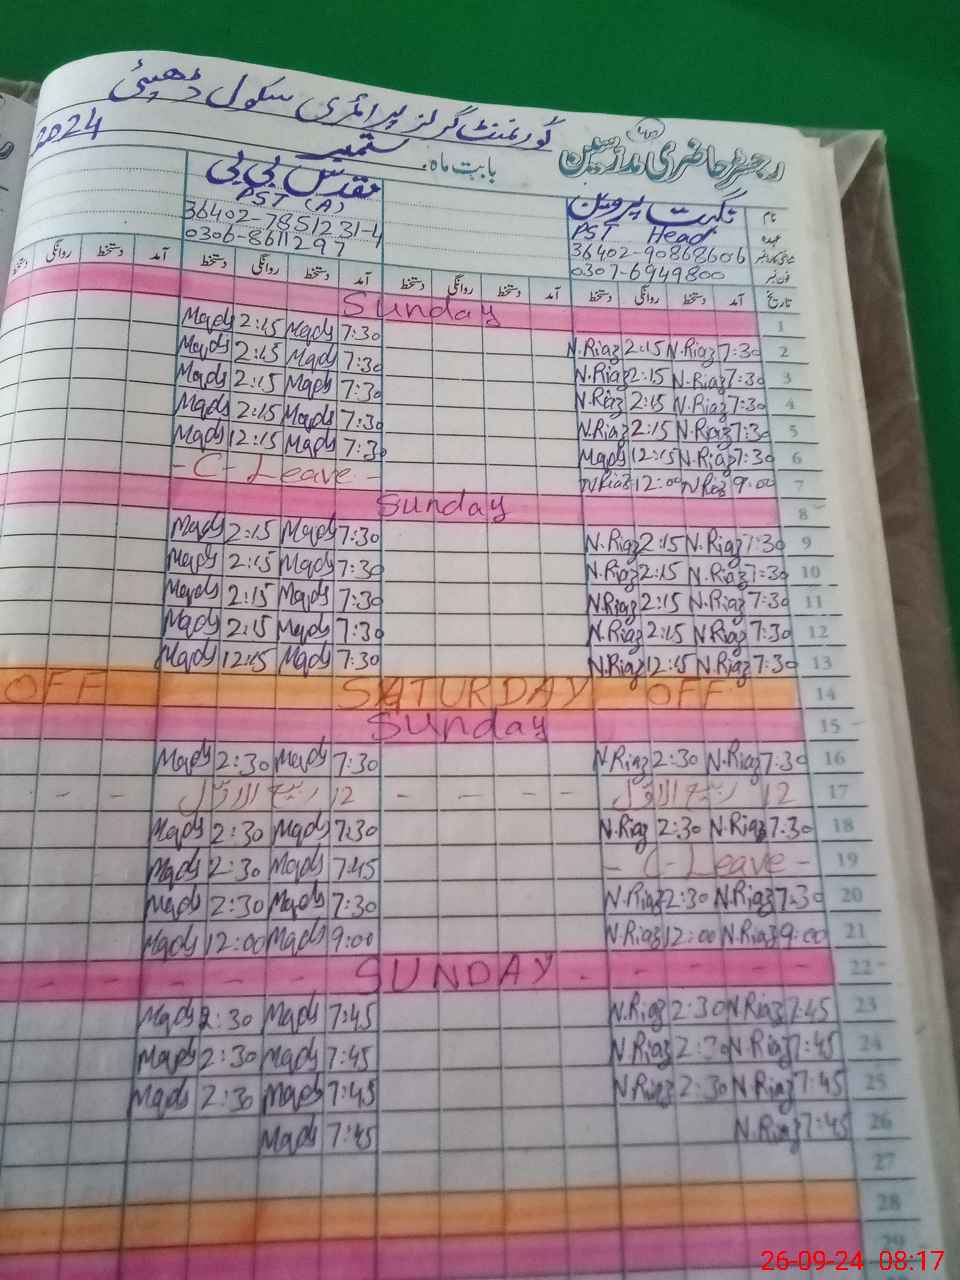 گورنمنٹ گرلز پرائمری سکول ڈھپئی
رجسٹر حاضری مدرسین بابت ماہ ستمبر 2024
نام نگہت پروین مقدس بی بی
عہدہ PST Head PST (A)
36402-90868606 36402-7851231-4
فون نمبر 0307-6949800 0306-8611297
تاریخ آمد دستخط روانگی دستخط آمد دستخط روانگی دستخط آمد دستخط روانگی دستخط آمد دستخط روانگی دستخط
1 Sunday
2 7:30 N.Riaz 2:15 N.Riaz 7:30 Maqds 2:15 Maqds
3 7:30 N.Riaz 2:15 N.Riaz 7:30 Maqds 2:15 Maqds
4 7:30 N.Riaz 2:15 N.Riaz 7:30 Maqds 2:15 Maqds
5 7:30 N.Riaz 2:15 N.Riaz 7:30 Maqds 2:15 Maqds
6 7:30 N.Riaz 12:15 Maqds 7:30 Maqds 12:15 Maqds
7 9:00 N.Riaz 12:00 N.Riaz - C - Leave -
8 Sunday
9 7:30 N.Riaz 2:15 N.Riaz 7:30 Maqds 2:15 Maqds
10 7:30 N.Riaz 2:15 N.Riaz 7:30 Maqds 2:15 Maqds
11 7:30 N.Riaz 2:15 N.Riaz 7:30 Maqds 2:15 Maqds
12 7:30 N.Riaz 2:15 N.Riaz 7:30 Maqds 2:15 Maqds
13 7:30 N.Riaz 12:15 N.Riaz 7:30 Maqds 12:15 Maqds
14 OFF SATURDAY OFF
15 Sunday
16 7:30 N.Riaz 2:30 N.Riaz 7:30 Maqds 2:30 Maqds
17 12 ربیع الاوّل - - - - 12 ربیع الاوّل - - -
18 7:30 N.Riaz 2:30 N.Riaz 7:30 Maqds 2:30 Maqds
19 - C - Leave - 7:45 Maqds 2:30 Maqds
20 7:30 N.Riaz 2:30 N.Riaz 7:30 Maqds 2:30 Maqds
21 9:00 N.Riaz 12:00 N.Riaz 9:00 Maqds 12:00 Maqds
22 - - - - SUNDAY - - - - -
23 7:45 N.Riaz 2:30 N.Riaz 7:45 Maqds 2:30 Maqds
24 7:45 N.Riaz 2:30 N.Riaz 7:45 Maqds 2:30 Maqds
25 7:45 N.Riaz 2:30 N.Riaz 7:45 Maqds 2:30 Maqds
26 7:45 N.Riaz 7:45 Maqds
27
28
29
26-09-24 08:17